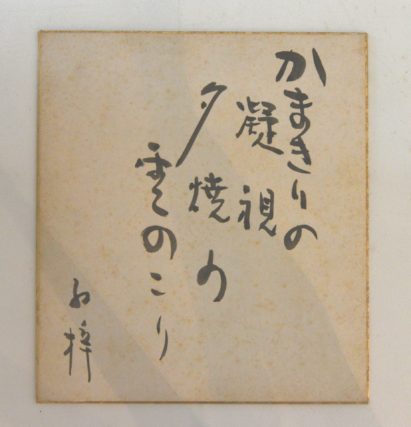 かまきりの
凝視
夕焼の
雲のこり